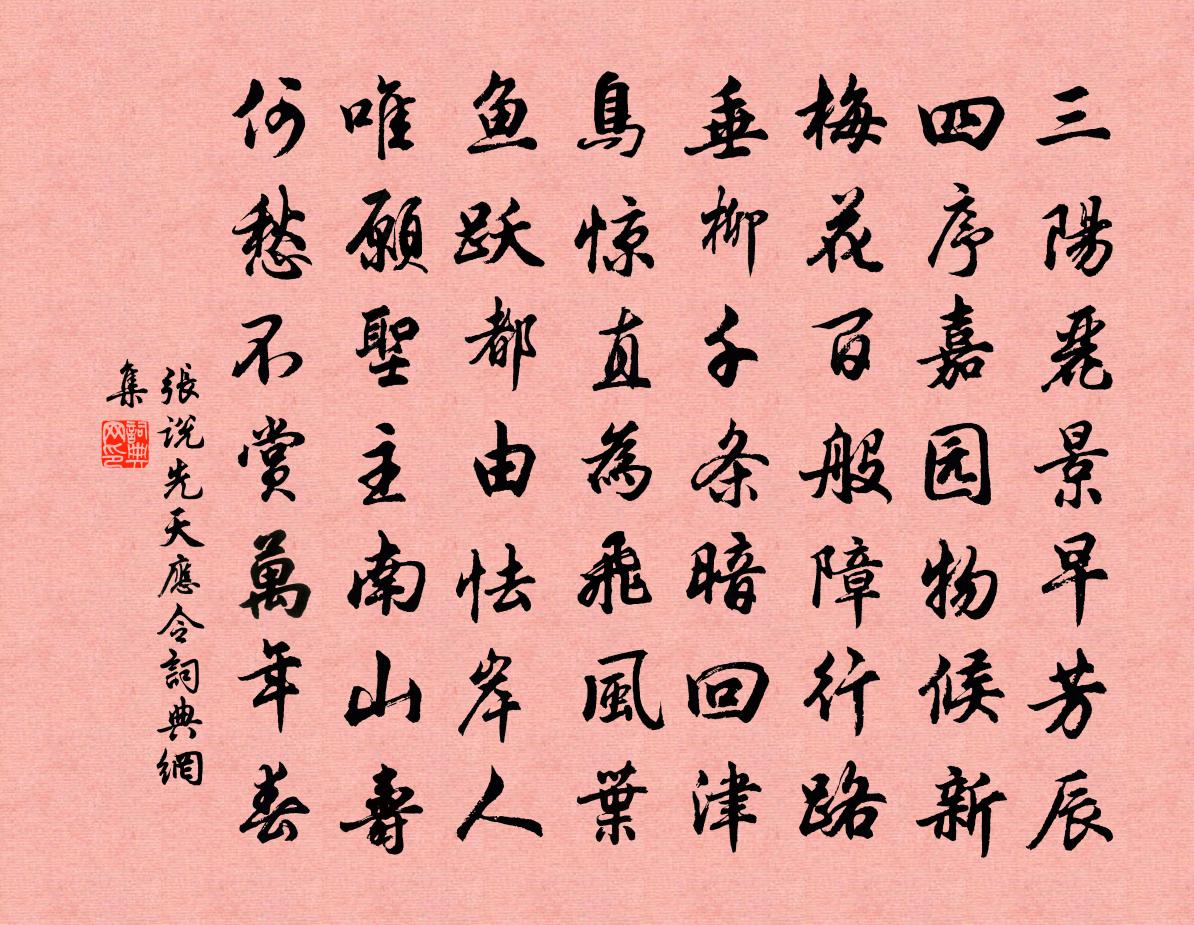 三陽麗景早芳辰
四序嘉园物候新
梅花百般障行路
垂柳千条暗回津
鳥惊直為飛風葉
魚跃都由怯岸人
唯願聖主南山壽
何愁不賞萬年春
張说先天應令詞典網
集
詞典
网印